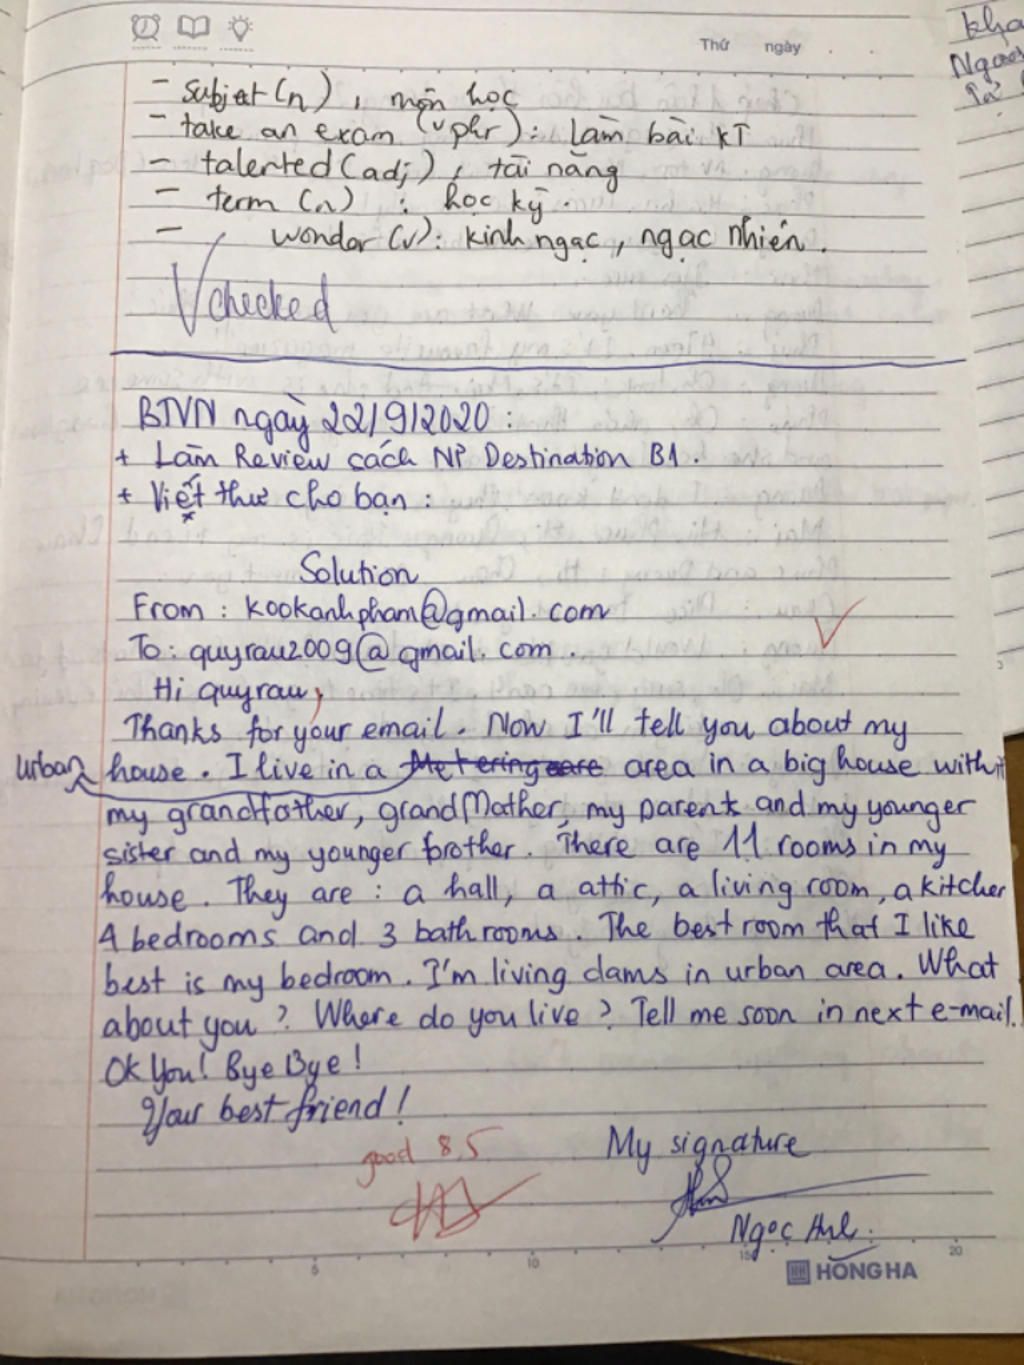 Thứ ngày
kha
Ngoài
- subject (n), môn học
- take an exam (v phr): làm bài KT
- talented (adj), tài năng
- term (n) : học kỳ.
- wonder (v): kinh ngạc, ngạc nhiên.
checked
BTVN ngày 22/9/2020:
+ Làm Review sách NP Destination B1.
+ Viết thư cho bạn:
Solution
From: kookanhpham@gmail.com
To: quyrau2009@gmail.com.
Hi quyrau,
Thanks for your email. Now I'll tell you about my
urban house. I live in a area in a big house with
my grandfather, grandMother, my parents and my younger
sister and my younger brother. There are 11 rooms in my
house. They are: a hall, a attic, a living room, a kitchen
4 bedrooms and 3 bathrooms. The best room that I like
best is my bedroom. I'm living in urban area. What
about you? Where do you live? Tell me soon in next e-mail.!
Ok You! Bye Bye!
Your best friend!
good 8,5
My signature
Ngọc
5 10 15 20
HỒNG HÀ